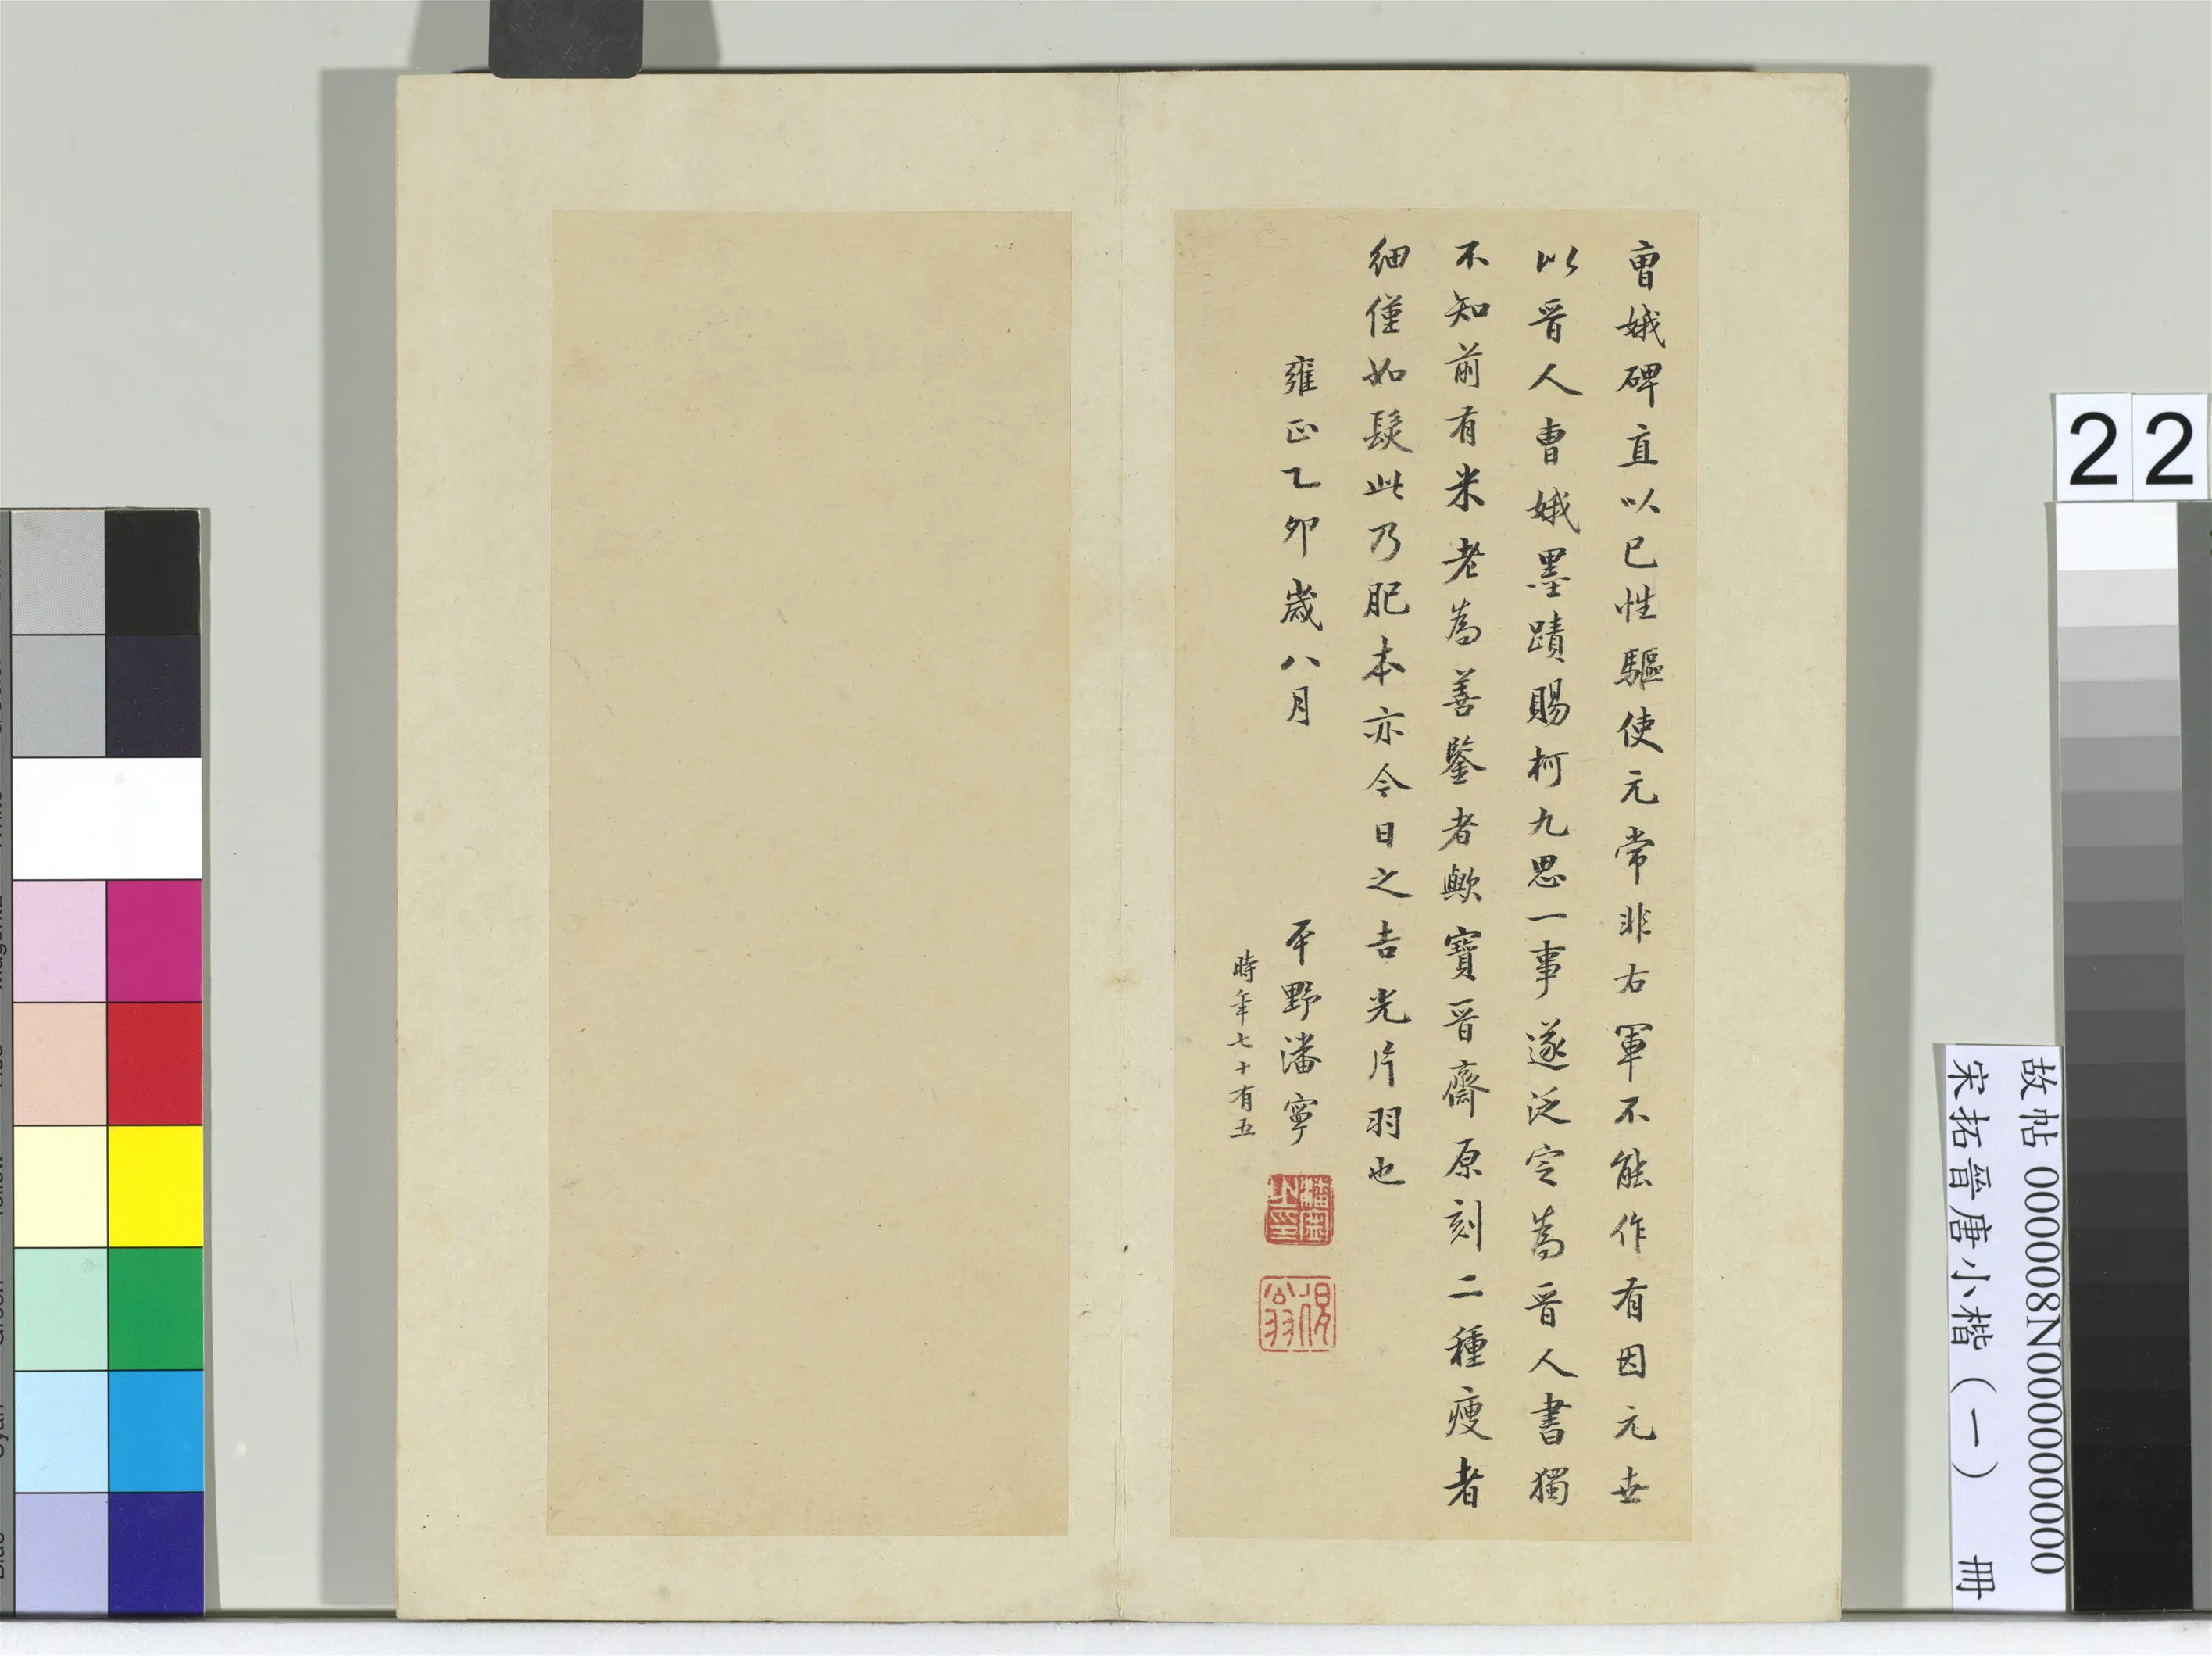 曹娥碑直以已性驅使元常非右軍不能作有因元世
以晉人曹娥墨蹟賜柯九思一事遂泛定為晉人書獨
不知前有米老為善鑒者歟寶晉齋原刻二種瘦者
細僅如髮此乃肥本亦今日之吉光片羽也
雍正乙卯歲八月
平野潘寧
時年七十有五
潘寧之印
22
故帖 000008N000000000
宋拓晉唐小楷（一） 冊